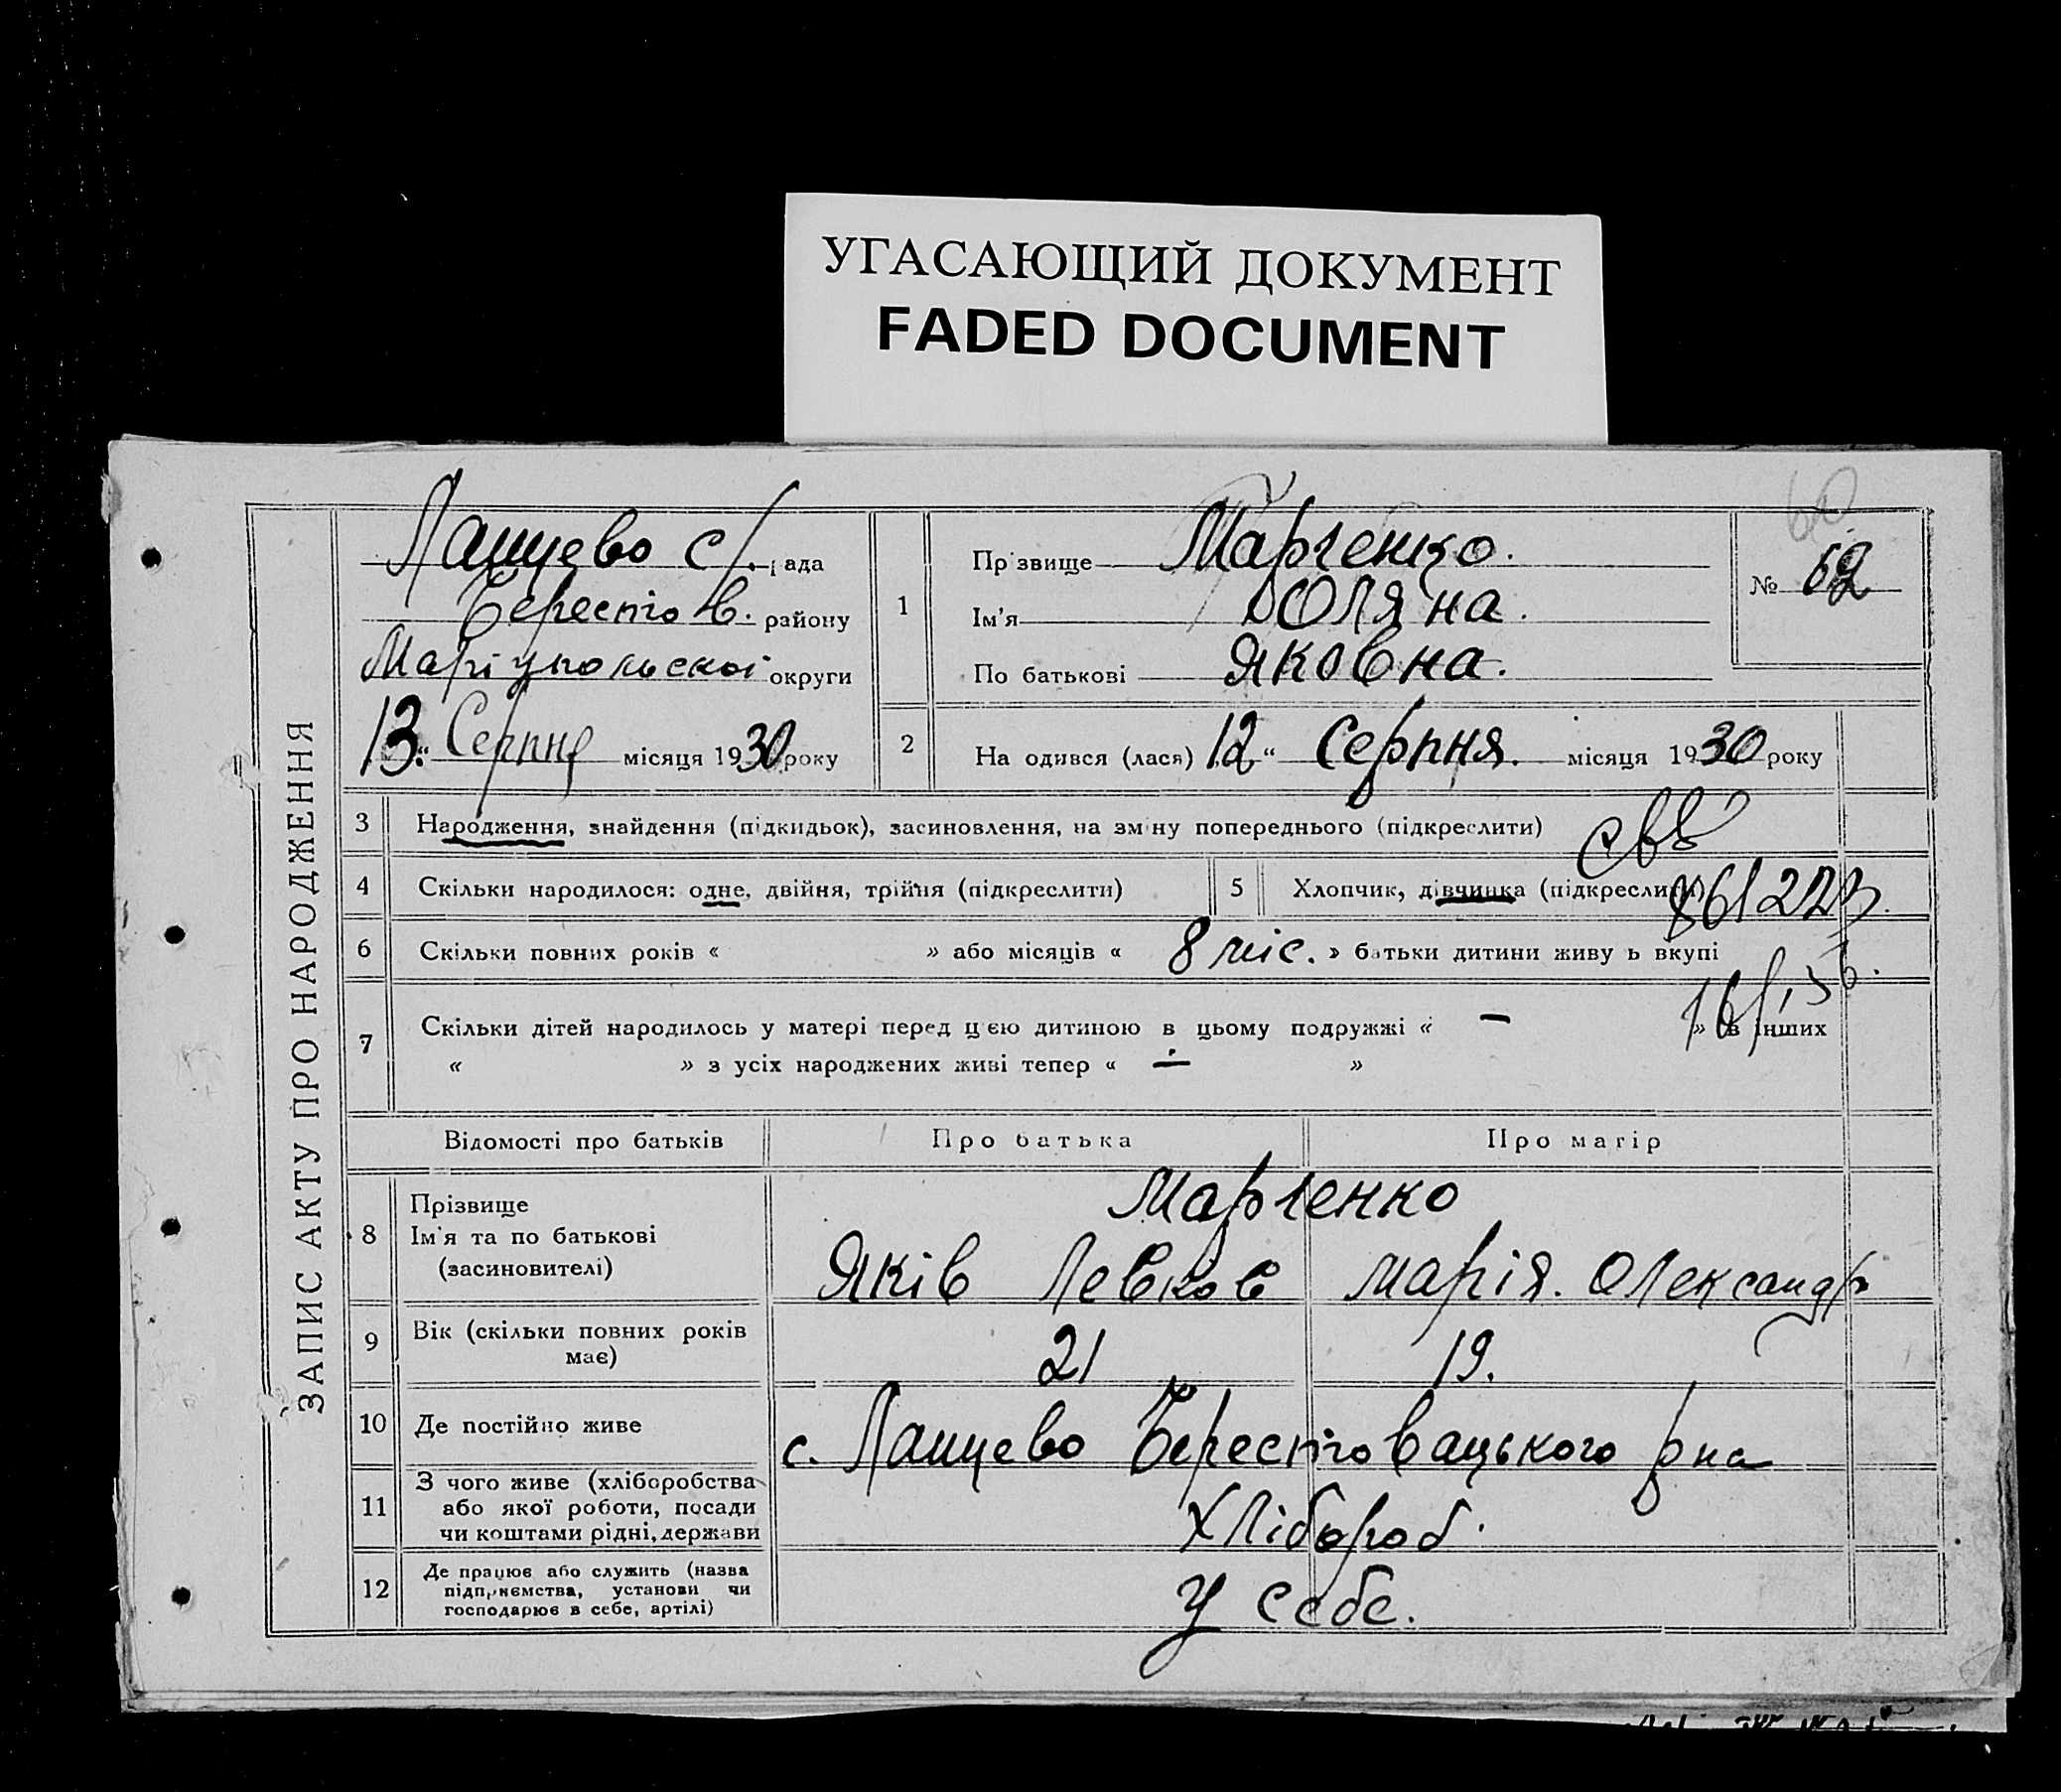 УГАСАЮЩИЙ ДОКУМЕНТ
FADED DOCUMENT
ЗАПИС АКТУ ПРО НАРОДЖЕННЯ
Ланцево с/. рада
Берестов. району
Маріупольскої округи
13 “ Серпня місяця 1930 року
1
Прізвище Марченко.
Ім'я Оляна.
По батькові Яковна.
60
№ 62
2 На одився (лася) 12 “ Серпня. місяця 1930 року
3 Народження, знайдення (підкидьок), засиновлення, на зміну попереднього (підкреслити)
свв
4 Скільки народилося: одне, двійня, трійня (підкреслити)
5 Хлопчик, дівчинка (підкреслити)
861223
6 Скільки повних років « » або місяців « 8 міс. » батьки дитини живу ь вкупі
7 Скільки дітей народилось у матері перед цією дитиною в цьому подружжі « — » в інших
« » з усіх народжених живі тепер « — »
Відомості про батьків Про батька Про матір
8 Прізвище
Ім'я та по батькові
(засиновителі)
Марченко
Яків Левков Марія. Олександр
9 Вік (скільки повних років має) 21 19.
10 Де постійно живе с. Ланцево Берестовацького рна
11 З чого живе (хліборобства
або якої роботи, посади
чи коштами рідні, держави
Хлібороб.
12 Де працює або служить (назва
підприємства, установи чи
господарює в себе, артілі)
У себе.